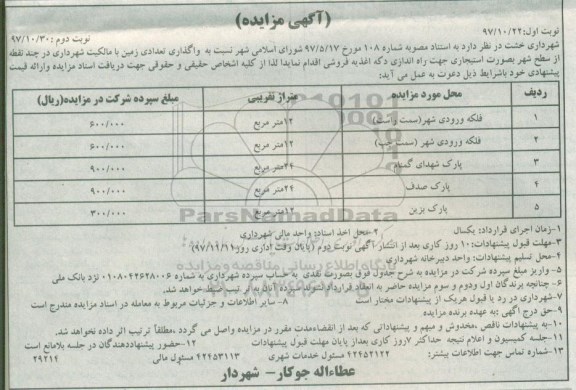 (آگهی مزایده)
نوبت اول: ۹۷/۱۰/۲۲
نوبت دوم: ۹۷/۱۰/۳۰
شهرداری خشت در نظر دارد به استناد مصوبه شماره ۱۰۸ مورخ ۹۷/۵/۱۷ شورای اسلامی شهر نسبت به واگذاری تعدادی زمین با مالکیت شهرداری در چند نقطه
از سطح شهر بصورت استیجاری جهت راه اندازی دکه اغذیه فروشی اقدام نماید لذا از کلیه اشخاص حقیقی و حقوقی جهت دریافت اسناد مزایده وارائه قیمت
پیشنهادی خود باشرایط ذیل دعوت به عمل می آید:
ردیف محل مورد مزایده متراژ تقریبی مبلغ سپرده شرکت در مزایده(ریال)
۱ فلکه ورودی شهر(سمت راست) ۱۲متر مربع ۶۰۰/۰۰۰
۲ فلکه ورودی شهر (سمت چپ) ۱۲متر مربع ۶۰۰/۰۰۰
۳ پارک شهدای گمنام ۲۴متر مربع ۹۰۰/۰۰۰
۴ پارک صدف ۲۴متر مربع ۹۰۰/۰۰۰
۵ پارک بزین ۱۲متر مربع ۳۰۰/۰۰۰
۱-زمان اجرای قرارداد: یکسال ۲-محل اخذ اسناد: واحد مالی شهرداری
۳-مهلت قبول پیشنهادات: ۱۰ روز کاری بعد از انتشار آگهی نوبت دوم (پایان وقت اداری روز ۹۷/۱۱/۱۹)
۴-محل تسلیم پیشنهادات: واحد دبیرخانه شهرداری
۵- واریز مبلغ سپرده شرکت در مزایده به شرح جدول فوق بصورت نقدی به حساب سپرده شهرداری به شماره ۰۱۰۸۰۴۲۶۲۸۰۰۶ نزد بانک ملی
۶- چنانچه برندگان اول ودوم و سوم مزایده حاضر به انعقاد قرارداد نشوند سپرده آنان به ترتیب ضبط خواهد شد.
۷-شهرداری در رد یا قبول هریک از پیشنهادات مختار است ۸- سایر اطلاعات و جزئیات مربوط به معامله در اسناد مزایده مندرج است
۹-حق درج آگهی :به عهده برنده مزایده
۱۰-به پیشنهادات ناقص ،مخدوش و مبهم و پیشنهاداتی که بعد از انقضاءمدت مقرر در مزایده واصل می گردد ،مطلقاً ترتیب اثر داده نخواهد شد.
۱۱-جلسه کمیسیون و اعلام نتیجه حداکثر ۷روز کاری بعداز پایان مهلت قبول پیشنهادات ۱۲-حضور پیشنهاددهندگان در جلسه بلامانع است
۱۳-شماره تماس جهت اطلاعات بیشتر: ۴۲۴۵۲۱۲۲ مسئول خدمات شهری ۴۲۴۵۳۱۱۳ مسئولی مالی ۲۹۲۱۴
عطاءاله جوکار- شهردار
ParsNamadData
پایگاه اطلاع رسانی مناقصه و مزایده